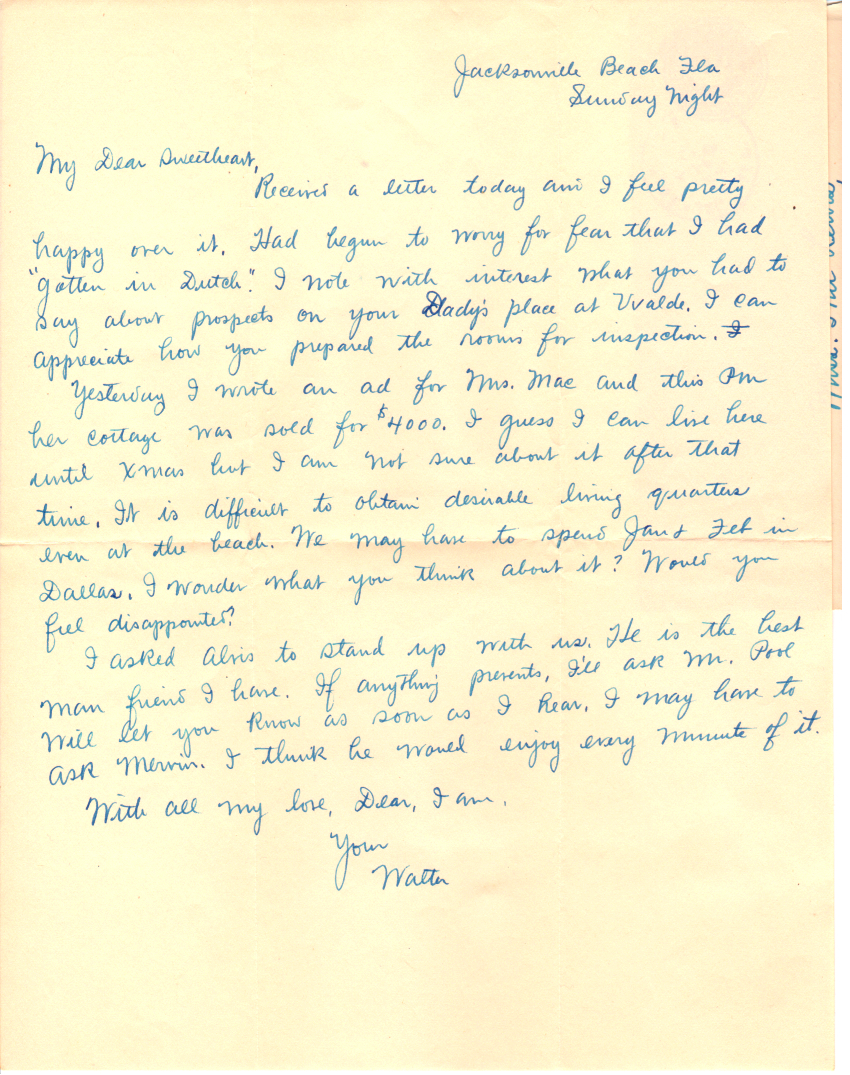 Jacksonville Beach Fla
Sunday Night
My Dear Sweetheart,
Received a letter today and I feel pretty
happy over it. Had begun to worry for fear that I had
"gotten in Dutch". I note with interest what you had to
say about prospects on your Dady's place at Uvalde. I can
appreciate how you prepared the rooms for inspection. I
Yesterday I wrote an ad for Mrs. Mac and this Pm
her cottage was sold for $4000. I guess I can live here
until Xmas but I am not sure about it after that
time. It is difficult to obtain desirable living quarters
even at the beach. We may have to spend Jan & Feb in
Dallas. I wonder what you think about it? Would you
feel disappointed?
I asked Alvis to stand up with us. He is the best
man friend I have. If anything prevents, I'll ask Mr. Pool
Will let you know as soon as I hear. I may have to
ask Mervin. I think he would enjoy every minute of it.
With all my love, Dear, I am,
Your
Walter